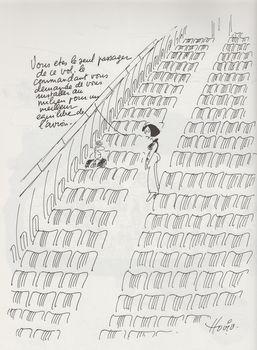 Vous êtes le seul passager
de ce vol, le
commandant vous
demande de vous
installer au
milieu pour un
meilleur
équilibre de
l'avion.